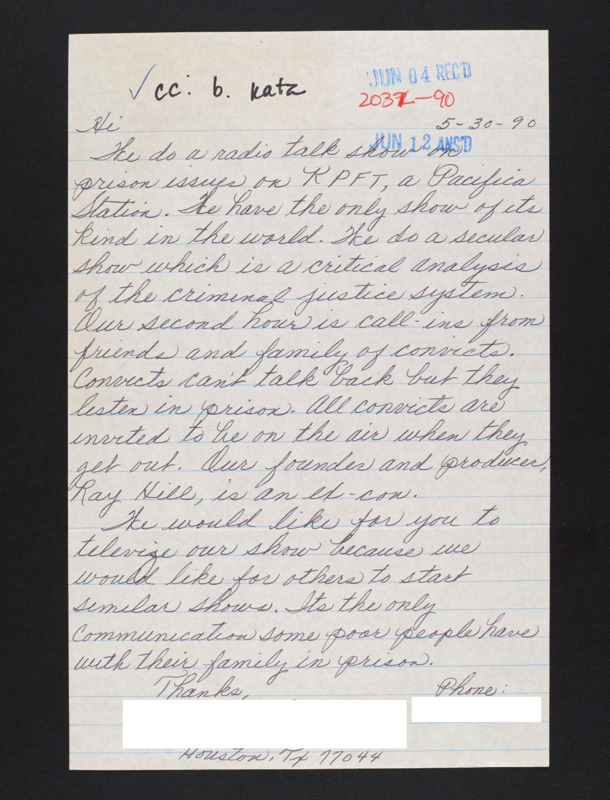 ✓ cc: b. katz
JUN 04 REC'D
2037-90
Hi 5-30-90
JUN 12 ANS'D
We do a radio talk show on
prison issues on KPFT, a Pacifica
Station. We have the only show of its
kind in the world. We do a secular
show which is a critical analysis
of the criminal justice system.
Our second hour is call-ins from
friends and family of convicts.
Convicts can't talk back but they
listen in prison. All convicts are
invited to be on the air when they
get out. Our founder and producer,
Ray Hill, is an ex-con.
We would like for you to
televize our show because we
would like for others to start
similar shows. Its the only
communication some poor people have
with their family in prison.
Thanks, Phone:
Houston, Tx 77044